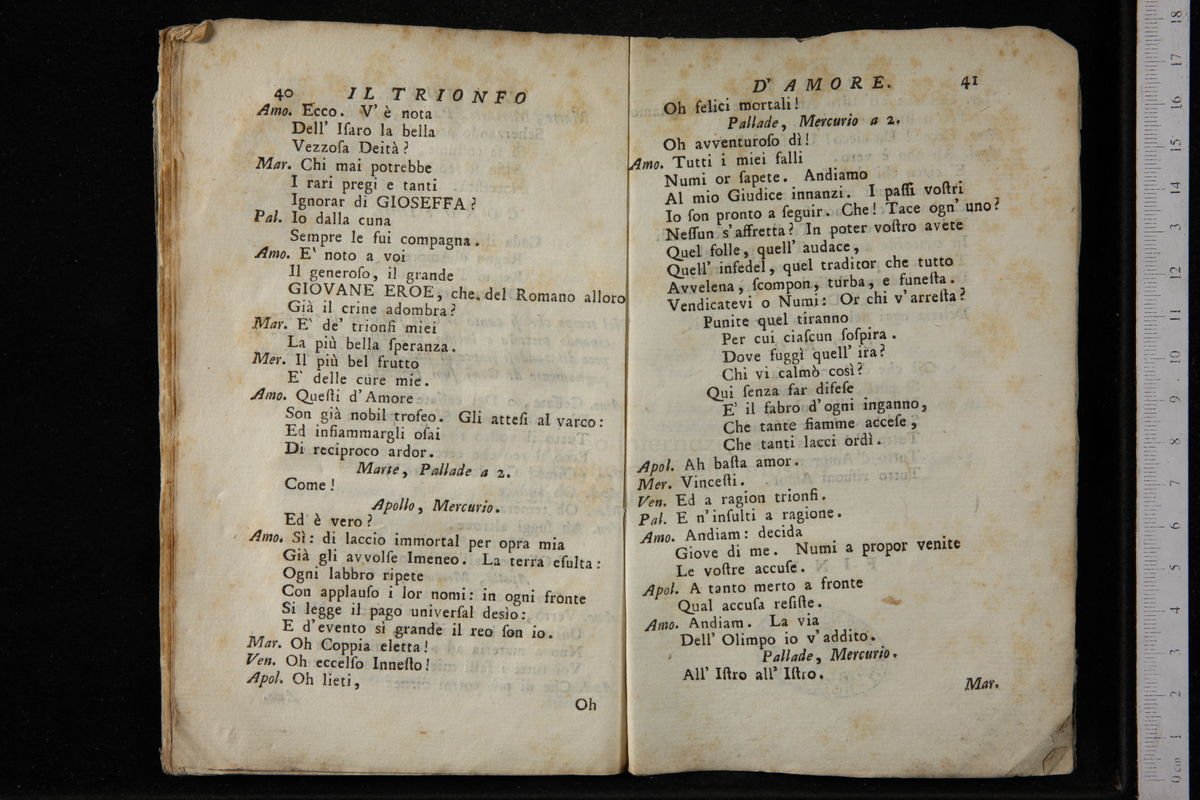 40 IL TRIONFO
Amo. Ecco. V' è nota
Dell' Iſaro la bella
Vezzoſa Deità?
Mar. Chi mai potrebbe
I rari pregi e tanti
Ignorar di GIOSEFFA?
Pal. Io dalla cuna
Sempre le fui compagna.
Amo. E' noto a voi
Il generoſo, il grande
GIOVANE EROE, che del Romano alloro
Già il crine adombra?
Mar. E' de' trionfi miei
La più bella ſperanza.
Mer. Il più bel frutto
E' delle cure mie.
Amo. Queſti d'Amore
Son già nobil trofeo. Gli atteſi al varco:
Ed infiammargli oſai
Di reciproco ardor.
Marte, Pallade a 2.
Come!
Apollo, Mercurio.
Ed è vero?
Amo. Sì: di laccio immortal per opra mia
Già gli avvolſe Imeneo. La terra eſulta:
Ogni labbro ripete
Con applauſo i lor nomi: in ogni fronte
Si legge il pago univerſal desìo:
E d'evento sì grande il reo ſon io.
Mar. Oh Coppia eletta!
Ven. Oh eccelſo Inneſto!
Apol. Oh lieti,
Oh
D' AMORE. 41
Oh felici mortali!
Pallade, Mercurio a 2.
Oh avventuroſo dì!
Amo. Tutti i miei falli
Numi or ſapete. Andiamo
Al mio Giudice innanzi. I paſſi voſtri
Io ſon pronto a ſeguir. Che! Tace ogn' uno?
Neſſun s'affretta? In poter voſtro avete
Quel folle, quell' audace,
Quell' infedel, quel traditor che tutto
Avvelena, ſcompon, turba, e funeſta.
Vendicatevi o Numi: Or chi v'arreſta?
Punite quel tiranno
Per cui ciaſcun ſoſpira.
Dove fuggì quell' ira?
Chi vi calmò così?
Qui ſenza far difeſe
E' il fabro d'ogni inganno,
Che tante fiamme acceſe,
Che tanti lacci ordì.
Apol. Ah baſta amor.
Mer. Vinceſti.
Ven. Ed a ragion trionfi.
Pal. E n'inſulti a ragione.
Amo. Andiam: decida
Giove di me. Numi a propor venite
Le voſtre accuſe.
Apol. A tanto merto a fronte
Qual accuſa reſiſte.
Amo. Andiam. La via
Dell' Olimpo io v'addito.
Pallade, Mercurio.
All' Iſtro all' Iſtro.
Mar.
0 cm 1 2 3 4 5 6 7 8 9 10 11 12 13 14 15 16 17 18